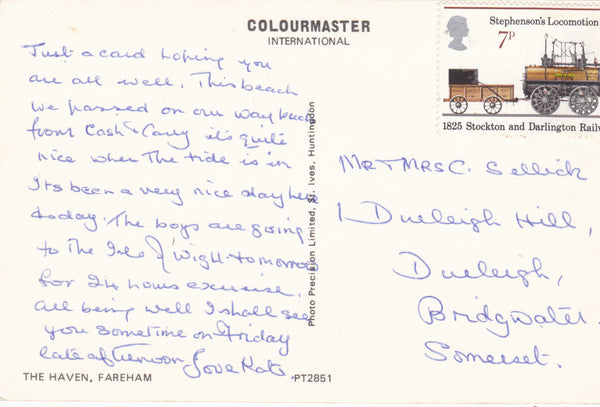 COLOURMASTER
INTERNATIONAL
Just a card hoping you
are all well. This beach
we passed on our way back
from Cash & Carry it's quite
nice when the tide is in
Its been a very nice day here
today. The boys are going
to The Isle of Wight tomorrow
for 24 hours exercise.
all being well I shall see
you sometime on Friday
late afternoon Love Kate
THE HAVEN, FAREHAM
PT2851
Photo Precision Limited, St. Ives, Huntingdon
Stephenson's Locomotion
7P
1825 Stockton and Darlington Railw
Mr & Mrs C. Sellick
1 Durleigh Hill,
Durleigh,
Bridgwater.
Somerset.